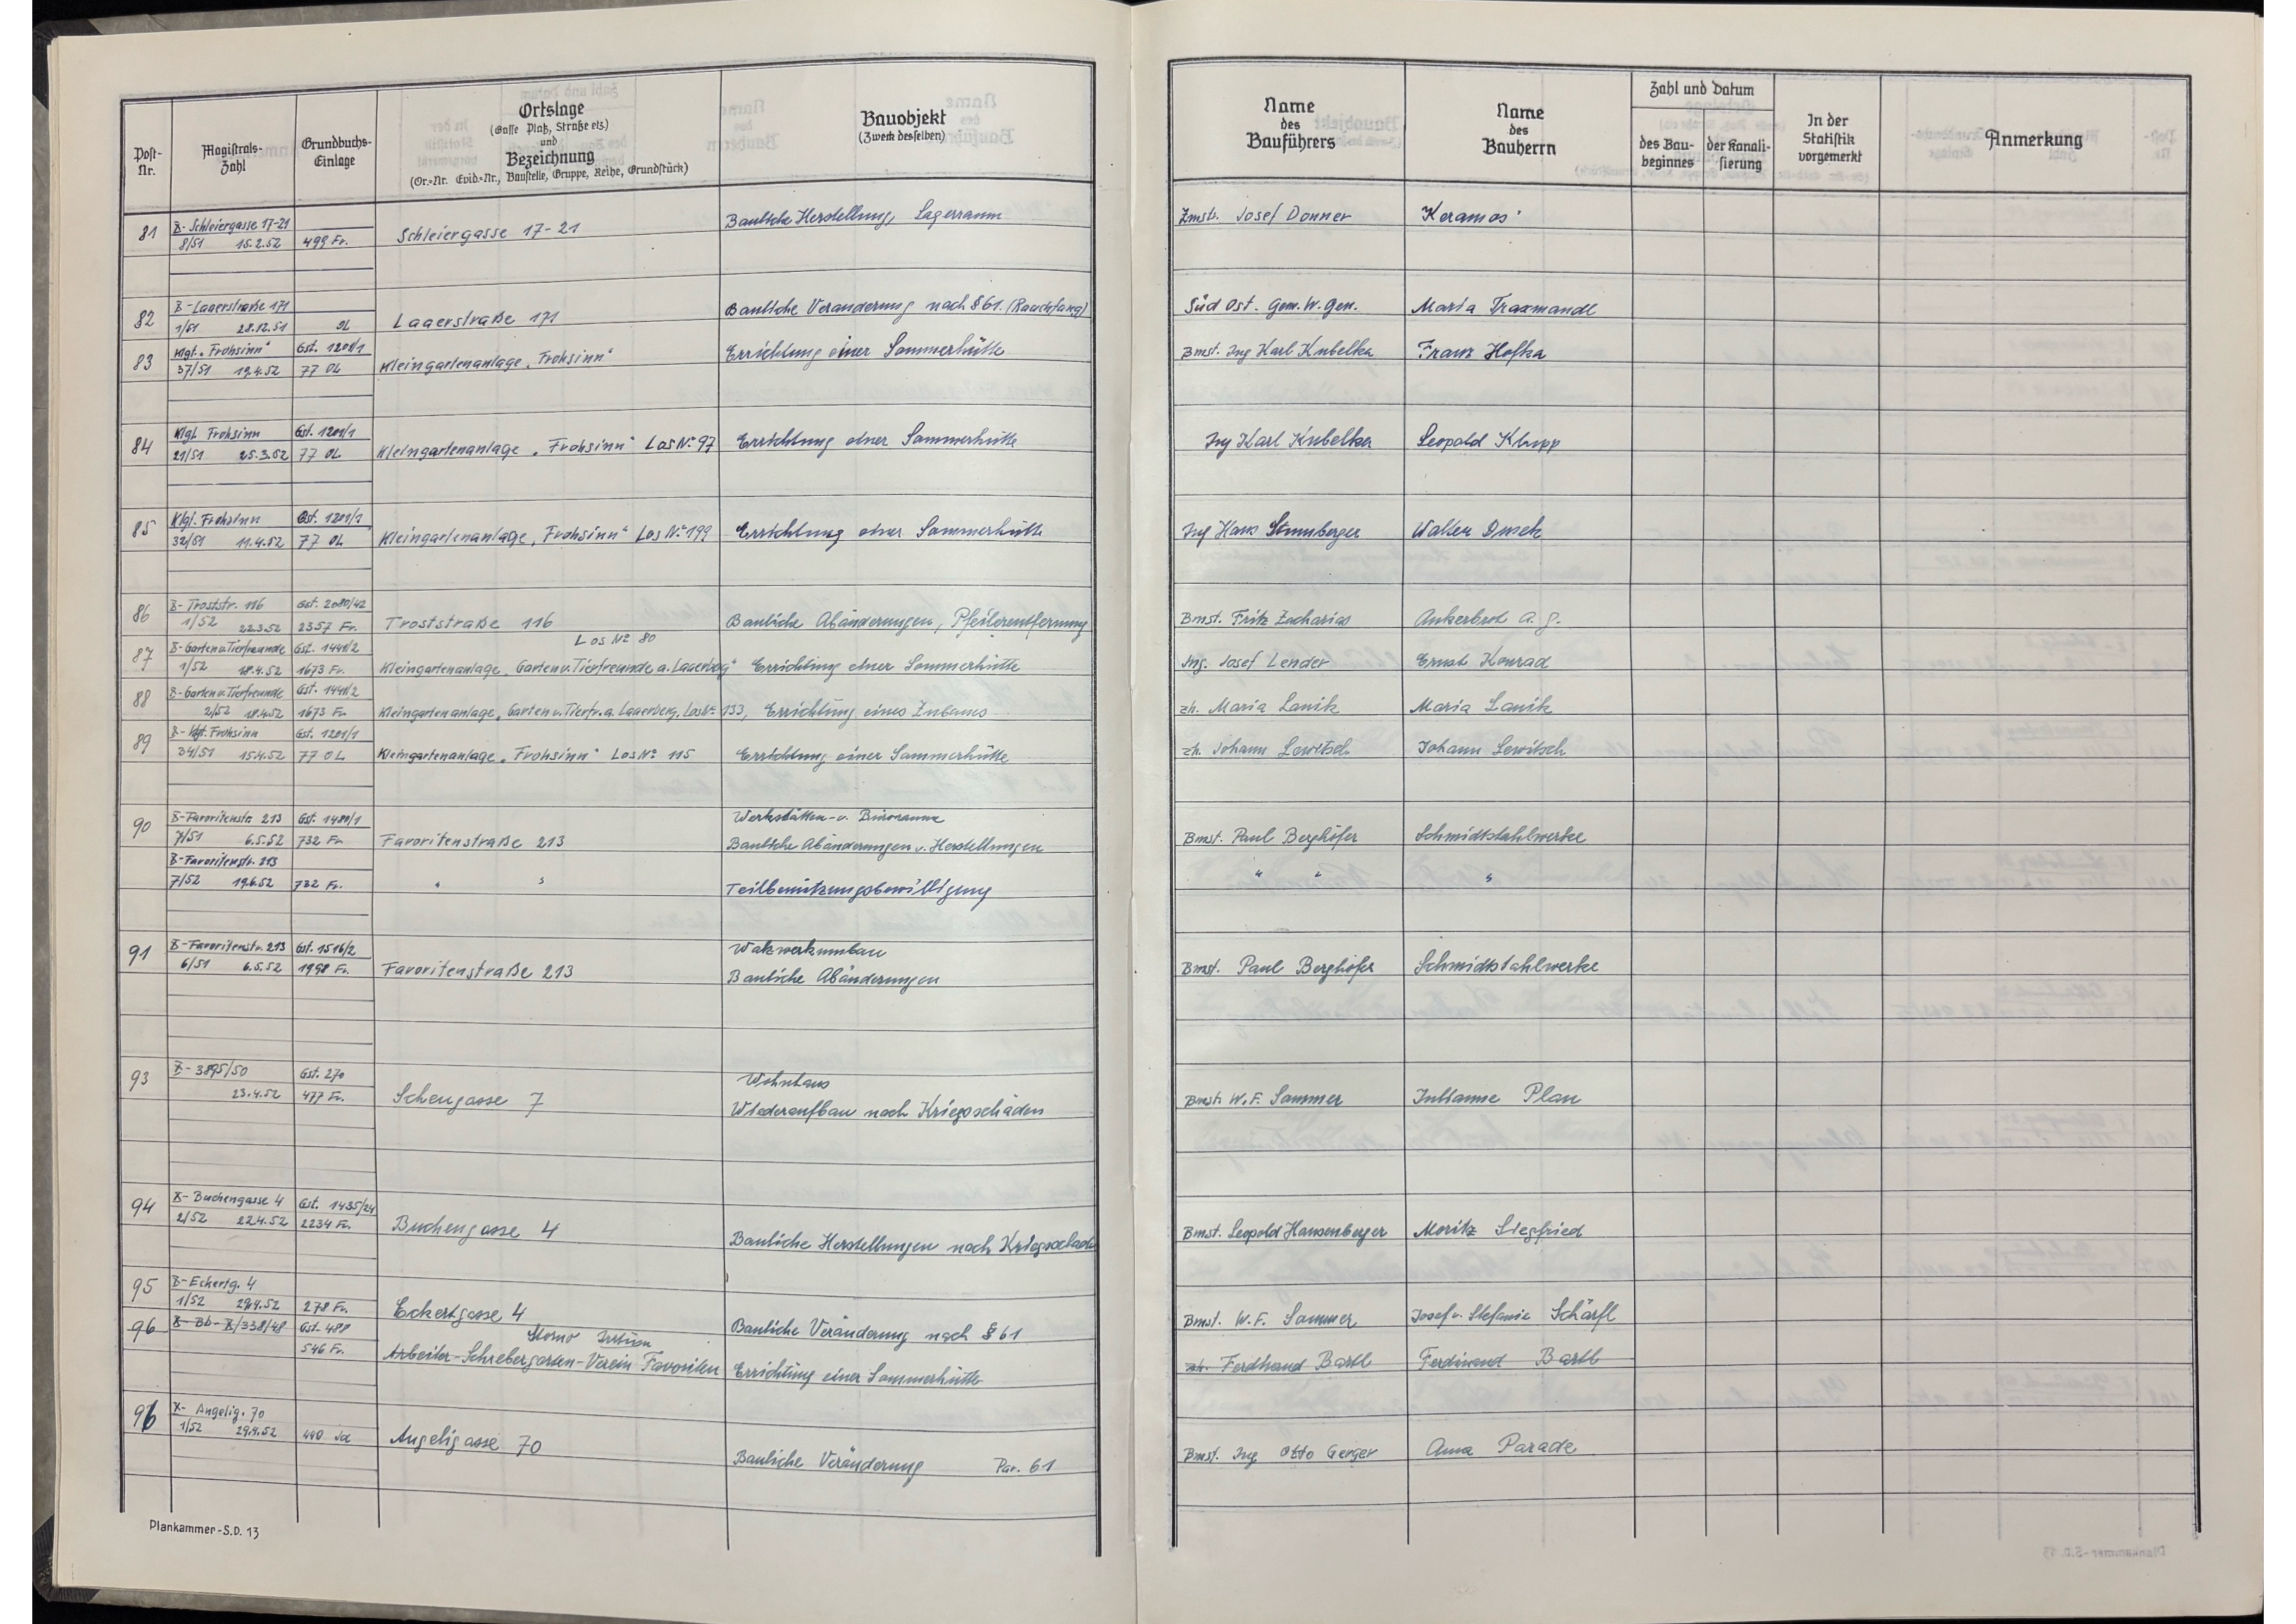 Post-
Nr.
Magistrats-
Zahl
Grundbuchs-
Einlage
Ortslage
(Gasse Platz, Straße etz)
und
Bezeichnung
(Or.-Nr. Evid.-Nr., Baustelle, Gruppe, Reihe, Grundstück)
Bauobjekt
(Zweck desselben)
Name
des
Bauführers
Name
des
Bauherrn
Zahl und Datum
des Bau-
beginnes
der Kanali-
sierung
In der
Statistik
vorgemerkt
Anmerkung
81 X-Schleiergasse 17-21
8/51 15.2.52 499 Fv. Schleiergasse 17-21 Bauliche Herstellung, Lagerraum Zmstr. Josef Donner Keramos
82 X-Laaerstraße 171
1/51 28.12.51 OL Laaerstraße 171 Bauliche Veränderung nach § 61. (Rauchfang) Süd Ost. Gem. W. Gen. Maria Traxmandl
83 Klgt. „Frohsinn“ Gst. 1201/1
37/51 19.4.52 77 OL Kleingartenanlage „Frohsinn“ Errichtung einer Sommerhütte Bmst. Ing Karl Kubelka Franz Hofka
84 Klgt. Frohsinn Gst. 1201/1
21/51 25.3.52 77 OL Kleingartenanlage „Frohsinn“ Los No 97 Errichtung einer Sommerhütte Ing Karl Kubelka Leopold Klupp
85 Klgt. Frohsinn Gst. 1201/1
32/51 11.4.52 77 OL Kleingartenanlage „Frohsinn“ Los No 199 Errichtung einer Sommerhütte Ing Hans Walter
86 X-Troststr. 116 Gst. 2080/42
1/52 22.3.52 2357 Fv. Troststraße 116 Bauliche Abänderungen, Pfeilerentfernung Bmst. Fritz Zacharias Ankerbrot A.G.
87 X-Garten u. Tierfreunde Gst. 1441/2 Los No 80
1/52 18.4.52 1673 Fv. Kleingartenanlage „Garten u. Tierfreunde a. Laaerberg“ Errichtung einer Sommerhütte Ing. Josef Lender Ernst Konrad
88 X-Garten u. Tierfreunde Gst. 1441/2
2/52 18.4.52 1673 Fv. Kleingartenanlage „Garten u. Tierfr. a. Laaerberg, Los No 133, Errichtung eines Zubaues zh. Maria Lanik Maria Lanik
89 X-Klgt. Frohsinn Gst. 1201/1
34/51 15.4.52 77 OL Kleingartenanlage „Frohsinn“ Los No 115 Errichtung einer Sommerhütte zh. Johann Lewitsch Johann Lewitsch
90 X-Favoritenstr. 213 Gst. 1480/1 Werkstätten- u. Büroraum
7/51 6.5.52 732 Fv. Favoritenstraße 213 Bauliche Abänderungen u. Herstellungen Bmst. Paul Berghöfer Schmidtstahlwerke
X-Favoritenstr. 213
7/52 19.6.52 732 Fv. " " Teilbenützungsbewilligung " " "
91 X-Favoritenstr. 213 Gst. 1516/2 Walzwerkumbau
6/51 6.5.52 1998 Fv. Favoritenstraße 213 Bauliche Abänderungen Bmst. Paul Berghöfer Schmidtstahlwerke
93 X-3895/50 Gst. 270 Wohnhaus
23.4.52 477 Fv. Scheugasse 7 Wiederaufbau nach Kriegsschäden Bmstr W. F. Sammer Julianne Plan
94 X-Buchengasse 4 Gst. 1435/24
2/52 22.4.52 2234 Fv. Buchengasse 4 Bauliche Herstellungen nach Kriegsschäd Bmst. Leopold Hausenberger Moritz Siegfried
95 X-Eckertg. 4
1/52 29.4.52 278 Fv. Eckertgasse 4 Bauliche Veränderung nach § 61 Bmst. W. F. Sammer Josef u. Stefanie Schärfl
96 X-Bb-X/338/48 Gst. 488 Storno Irrtum
546 Fv. Arbeiter-Schrebergarten-Verein Favoriten Errichtung einer Sommerhütte zh. Ferdinand Bartl Ferdinand Bartl
96 X-Angelig. 70
1/52 29.4.52 440 Angeligasse 70 Bauliche Veränderung Par. 61 Bmst. Ing Otto Gerger Anna Parade
Plankammer-S.D. 13